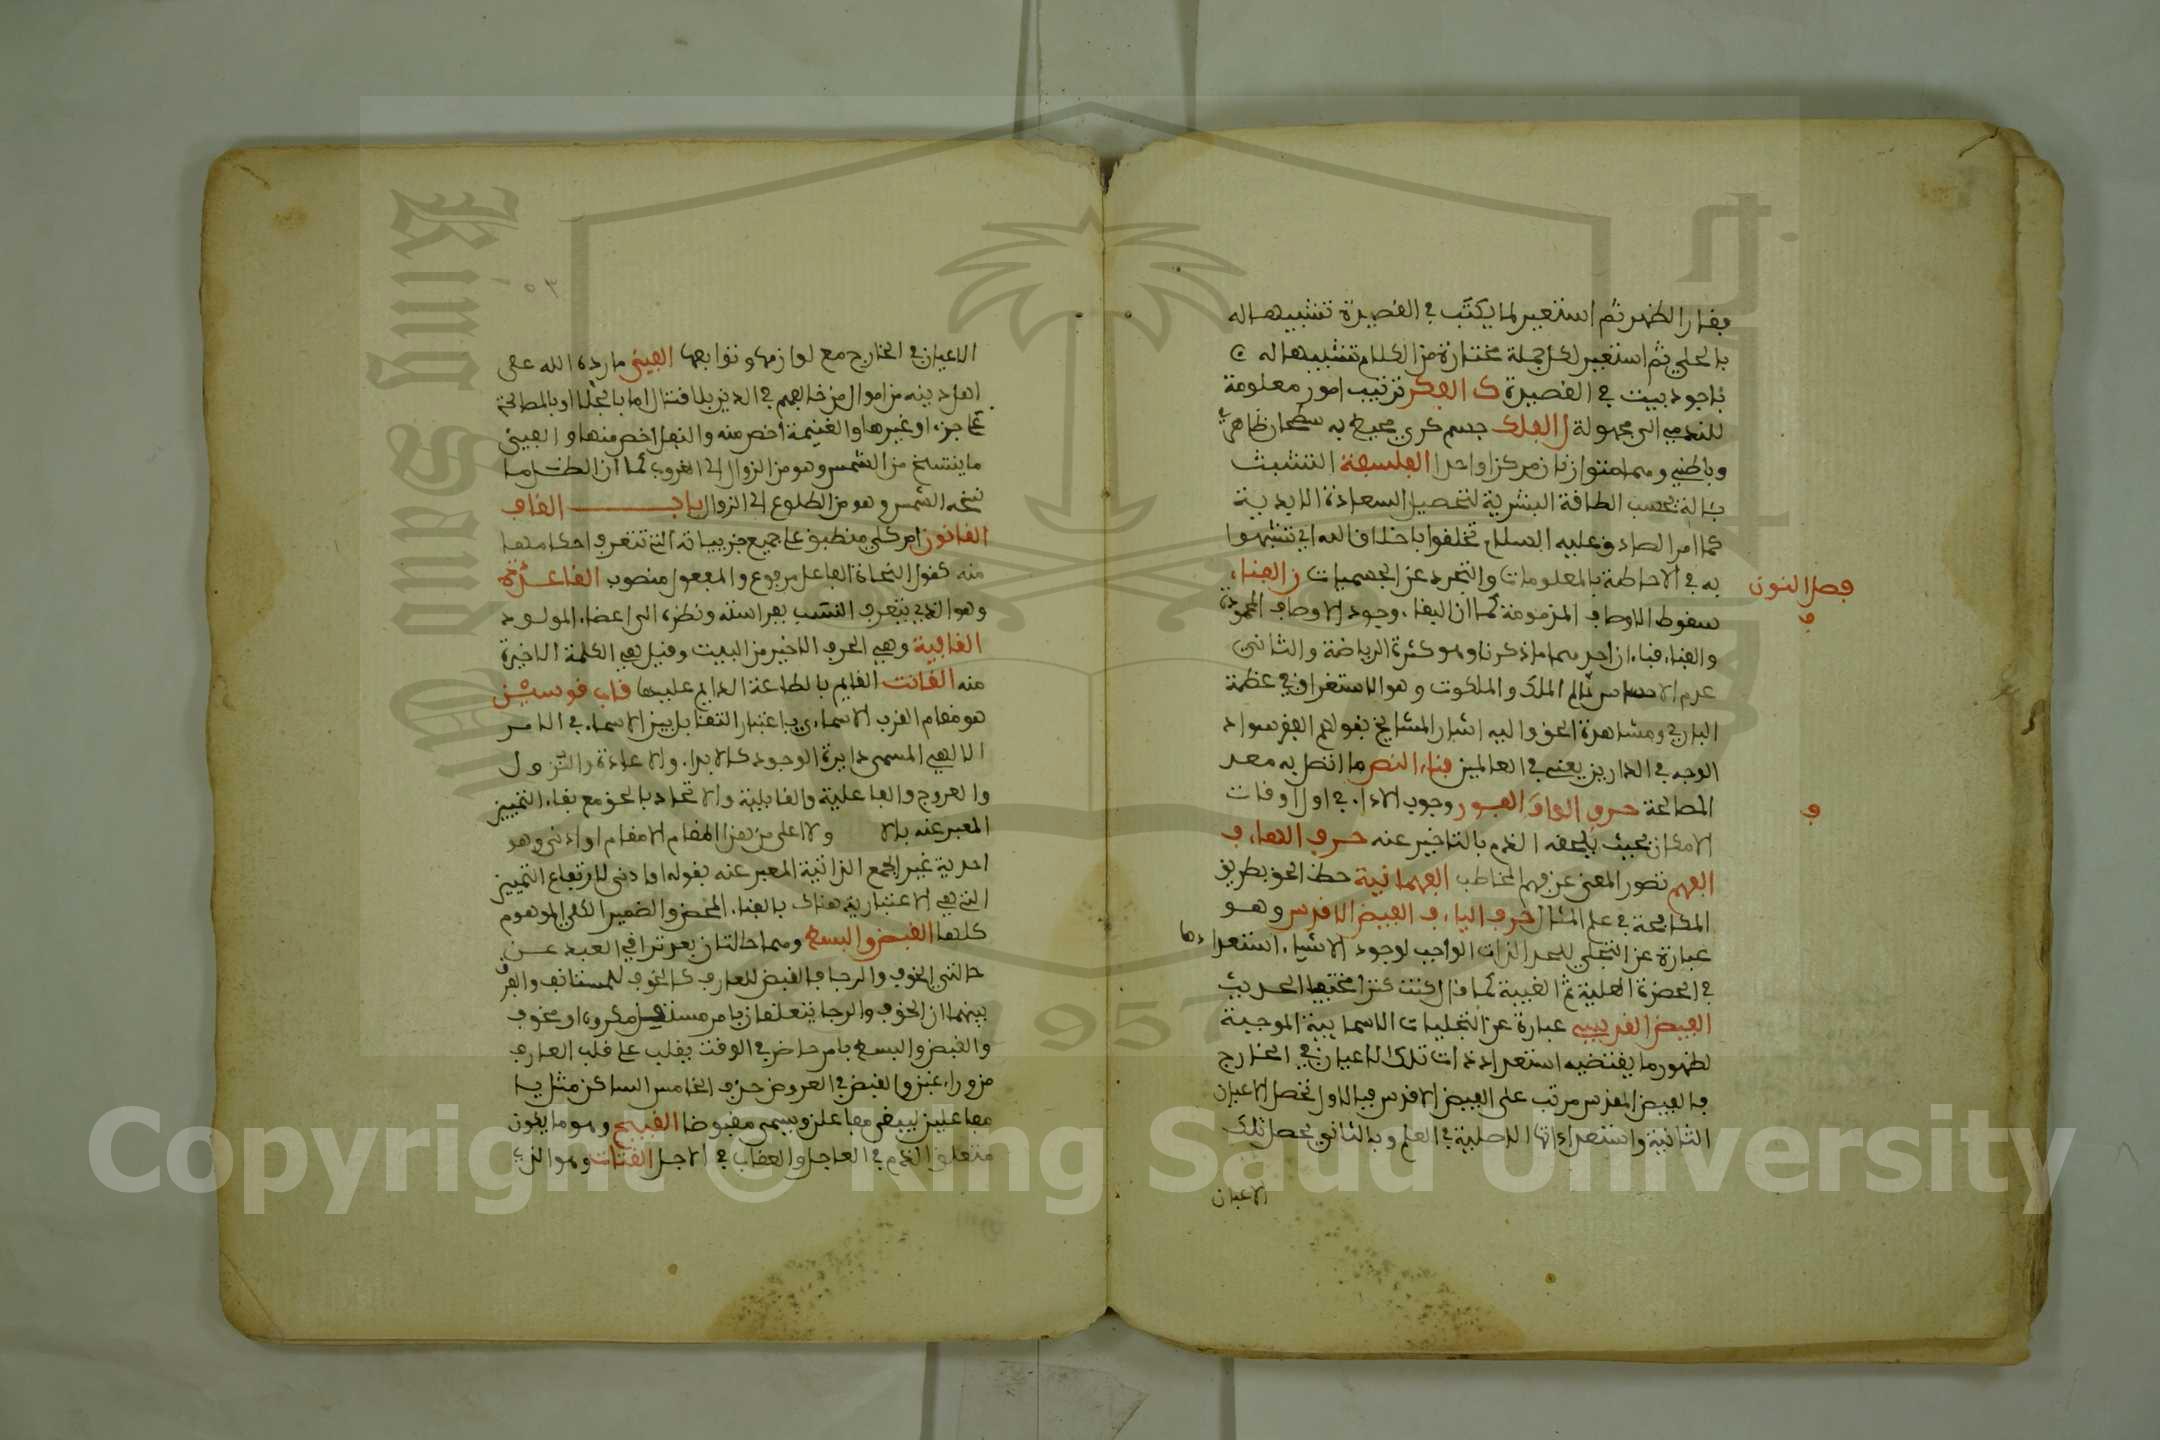 بفار الظهر ثم استعير لما يكتب في القصيدة تشبيها له
بالحلي ثم استعير لكل جملة مختارة من الكلام تشبيها له
باجود بيت في القصيدة ك الفكر ترتيب امور معلومة
للتدي الى مجهولة ل الفلك جسم كري محيط به سطحان ظاهري
وباطني وهما متوازيان مركزهما واحد الفلسفة التشبث
بالاله بحسب الطاقة البشرية لتحصيل السعادة الابدية
كما امر الصادق عليه السلام تخلقوا باخلاق الله اي تشبهوا
به في الاحاطة بالمعلومات والتجرد عن الجسميات ن الفناء
فصل النون
سقوط الاوصاف المذمومة كما ان البقاء وجود الاوصاف المحمودة
ف
والفناء فناءان احدهما ما ذكرنا وهو كثرة الرياضة والثاني
عدم الاحساس بعالم الملك والملكوت وهو الاستغراق في عظمة
الباري ومشاهدة الحق واليه اشار المشايخ بقولهم الفقر سواد
الوجه في الدارين يعني في العالمين فناء النص ما اتصل به معد
المصالحة حرف الواو الفور وجوب الاداء في اول اوقات
ف
الامكان بحيث يلحقه الذم بالتاخير عنه حرف الهاء ف
الفهم تصور المعنى عن فهم المخاطب الفهمانية خطاب الحق بطريق
المكافحة في علم المثال حرف الياء ف الفيض الاقدس وهو
عبارة عن التجلي للحد الذات الواجب لوجود الاشياء واستعداداتها
في الحضرة العلية ثم الغيبة كما قال كنت كنزا مختفيا الحديث
الفيض القديسي عبارة عن التجليات الاسمايية الموجبة
لظهور ما يقتضيه استعدادات تلك الاعيان في الخارج
فالفيض المقدس مرتب على الفيض الاقدس فبالاول تحصل الاعيان
الثابتة واستعداداتها الاصلية في العلم وبالثاني تحصل تلك
الاعيان
٥٣
الاعيان في الخارج مع لوازمها وتوابعها الفيئ ما رده الله على
اهل دينه من اموال من خالفهم في الدين بلا قتال اما بالجلا او بالمصالحة
على جزء او غيرها والغنيمة اخص منه والنفل اخص منها والفيئ
ما ينسخ من الشمس وهو من الزوال الى الغروب كما ان الظل ما
نسخه الشمس وهو من الطلوع الى الزوال باب القاف
القانون امر كلي منطبق على جميع جزيياته التي تتعرف احكامها
منه كقول النحاة الفاعل مرفوع والمفعول منصوب القاعدة
وهو الذي يتعرف النسب بفراسته ونظره الى اعضاء المولود
القافية وهي الحرف الاخير من البيت وقيل هي الكلمة الاخيرة
منه القانت القايم بالطاعة الدايم عليها قاب قوسين
هو مقام القرب الاسماءي باعتبار التقابل بين الاسماء في الامر
الالهي المسمى دايرة الوجود كالابداء والاعادة والنزول
والعروج والفاعلية والقابلية والاتحاد بالحق مع بقاء التمييز
المعبر عنه بالا ولا اعلى من هذا المقام الا مقام او ادنى وهو
احدية عين الجمع الذاتية المعبر عنه بقوله او ادنى لارتفاع التمييز
التي هي الاعتبارية هناك بالفناء المحض والضمير الكلي الموهوم
كلها القبض والبسط وهما حالتان بعد ترقي العبد عن
حالتي الخوف والرجا فالقبض للعارف كالخوف للمستانف والفرق
بينهما ان الخوف والرجا يتعلقان بامر مستقبل مكروه او مخوف
والقبض والبسط بامر حاضر في الوقت يغلب على قلب العارف
من وراء غيب والقبض في العروض حذف الخامس الساكن مثل يا
مفاعيلن ليبقى مفاعلن ويسمى مقبوضا القبيح وهو ما يكون
متعلق الذم في العاجل والعقاب في الاجل القتات وهو الذي
Copyright © King Saud University
King Saud
1957